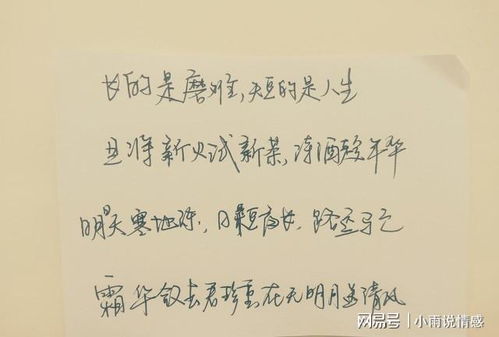 长的是磨难,短的是人生
且将新火试新茶,诗酒趁年华
明天寒地冻,日短夜长,路远马亡
霜华 去君珍重 在无明月 清风
网易号 / 小雨说情感